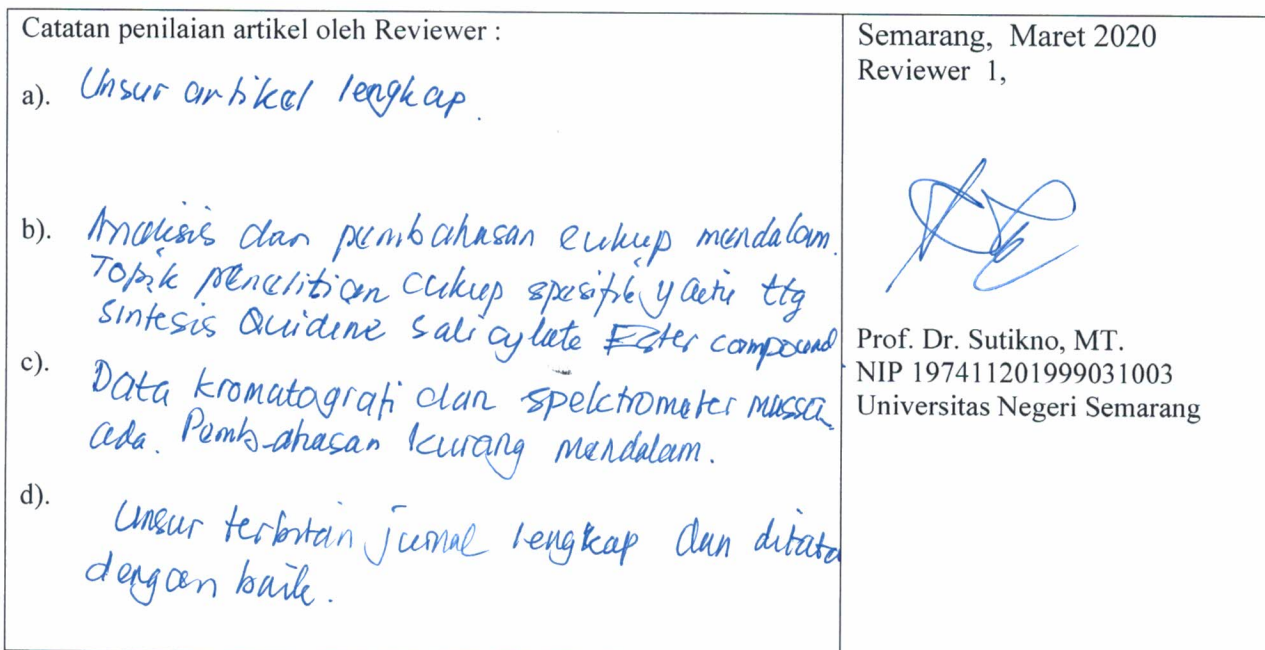 Catatan penilaian artikel oleh Reviewer :
a). Unsur artikel lengkap.
b). Analisis dan pembahasan cukup mendalam.
Topik penelitian cukup spesifik, yaitu ttg
sintesis Quidene salicylate Ester compound
c). Data kromatografi dan spektrometer massa
ada. Pembahasan kurang mendalam.
d). Unsur terbitan jurnal lengkap dan ditata
dengan baik.
Semarang, Maret 2020
Reviewer 1,
Prof. Dr. Sutikno, MT.
NIP 197411201999031003
Universitas Negeri Semarang